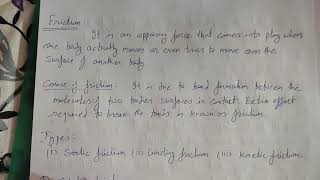 Friction
It is an opposing force that comes into play when
one body actually moves or even tries to move over the
surface of another body
Cause of friction: It is due to bond formation between the
molecules of two bodies surfaces in contact. Extra effort
required to break the bonds is known as friction.
Types:-
(i) Static friction (ii) Limiting friction (iii) Kinetic friction